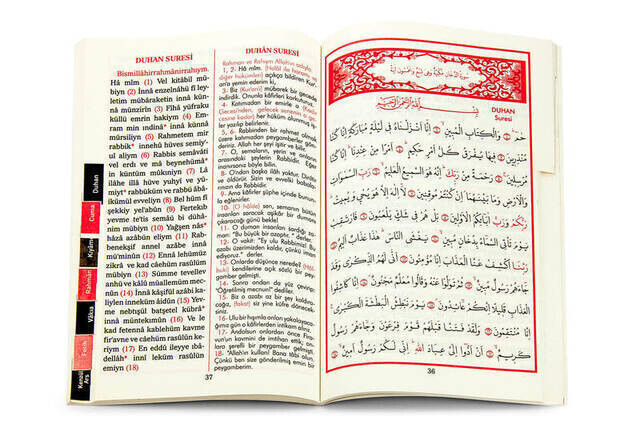 DUHAN SURESİ
Bismillâhirrahmânirrahıym.
Hâ mîm (1) Vel kitâbil mü-
biyn (2) İnnâ enzelnâhü fî ley-
letim mübâraketin innâ kün-
nâ münzirîn (3) Fîhâ yüfraku
küllü emrin hakiym (4) Em-
ram min ındinâ* innâ künnâ
mürsiliyn (5) Rahmetem mir
rabbik* innehü hüves semiy'-
ul aliym (6) Rabbis semâvâti
vel erdı ve mâ beynehümâ*
in küntüm mûkıniyn (7) Lâ
ilâhe illâ hüve yuhyî ve yü-
miyt* rabbüküm ve rabbü âbâ-
ikümül evveliyn (8) Bel hüm fî
şekkiy yel'abûn (9) Fertekıb
yevme te'tis semâü bi dühâ-
nim mübiyn (10) Yağşen nâs*
hâzâ azâbün eliym (11) Rab-
benekşif annel azâbe innâ
mü'minûn (12) Ennâ lehümüz
zikrâ ve kad câehüm rasûlüm
mübiyn (13) Sümme tevellev
anhü ve kâlû müallemüm mec-
nûn (14) İnnâ kâşifül azâbi ka-
liylen inneküm âidûn (15) Yev-
me nebtışül batşetel kübrâ*
innâ müntekımûn (16) Ve le
kad fetennâ kablehüm kavme
fir'avne ve câehüm rasûlün
keriym (17) En eddû ileyye ıbâ-
dellâh* innî leküm rasûlün
emiyn (18)
Duhan
Cuma
Kıyame
Rahmân
Vâkıa
Fetih
DUHÂN SURESİ
Rahman ve Rahıym Allah'ın adıyla
1, 2- Hâ mîm. (Helâl ile haramı ve
diğer hükümleri) açıkça bildiren Kur'-
ana yemin ederim ki,
3- Biz (Kur'an'ı) mübarek bir gecede
indirdik. Onunla kâfirleri korkuturuz.
4- Katımızdan bir emirle o
gecesinden, gelecek senenin o ge-
cesine kadar) her hüküm alınmış iş-
ler yazılıp belirlenir.
5, 6- Rabbinden bir rahmet olmak
üzere katımızdan peygamberler gönder-
diriz. Allah her şeyi işitir ve bilir.
7- O, semaların, yerin ve onların
arasındaki şeylerin Rabbidir. Eğer
inanırsanız böyle bilin.
8- O'ndan başka ilâh yoktur. Diriltir
ve öldürür. Sizin ve evvelki babaları-
nızın da Rabbidir.
9- Ama kâfirler şüphe içinde bunun-
la eğlenirler.
10- (O hâlde) sen, semanın bütün
insanları saracak aşikâr bir duman
çıkaracağı günü bekle!
11- O duman insanları sardığı za-
man: "Bu büyük bir azaptır." derler.
12- O vakit: "Ey ulu Rabbimiz! Bu
azabı üzerimizden kaldır, çünkü iman
ediyoruz." derler.
13- Onlarda düşünce nerede!
kendilerine açık sözlü bir pey-
gamber gelmişti.
14- Sonra ondan yüz çevirip:
"Öğretilmiş mecnun!" dediler.
15- Biz o azabı az bir şey kaldırı-
cağız, (fakat) siz yine küfre dönecek-
siniz.
16- Ulu bir hışımla onları yakalayaca-
ğımız gün o kâfirlerden intikam alırız.
17- Andolsun onlardan önce Firav-
un'un kavmini de imtihan ettik, on-
lara şerefli bir peygamber gelmişti.
18- "Allah'ın kulları! Bana tâbi olun.
Çünkü ben size gönderilmiş emin bir
peygamberim.
37
سورة الدخان مكية وهي تسع وخمسون آية
DUHAN
Suresi
بِسْمِ اللّٰهِ الرَّحْمٰنِ الرَّحِيمِ
حٰمٓ ﴿١﴾ وَالْكِتَابِ الْمُبِينِ ﴿٢﴾ اِنَّٓا اَنْزَلْنَاهُ فِي لَيْلَةٍ مُبَارَكَةٍ اِنَّا كُنَّا
مُنْذِرِينَ ﴿٣﴾ فِيهَا يُفْرَقُ كُلُّ اَمْرٍ حَكِيمٍ ﴿٤﴾ اَمْرًا مِنْ عِنْدِنَا اِنَّا كُنَّا
مُرْسِلِينَ ﴿٥﴾ رَحْمَةً مِنْ رَبِّكَ اِنَّهُ هُوَ السَّمِيعُ الْعَلِيمُ ﴿٦﴾ رَبِّ السَّمٰوَاتِ
وَالْاَرْضِ وَمَا بَيْنَهُمَا اِنْ كُنْتُمْ مُوقِنِينَ ﴿٧﴾ لَٓا اِلٰهَ اِلَّا هُوَ يُحْيِي وَيُمِيتُ
رَبُّكُمْ وَرَبُّ اٰبَٓائِكُمُ الْاَوَّلِينَ ﴿٨﴾ بَلْ هُمْ فِي شَكٍّ يَلْعَبُونَ ﴿٩﴾ فَارْتَقِبْ
يَوْمَ تَأْتِي السَّمَٓاءُ بِدُخَانٍ مُبِينٍ ﴿١٠﴾ يَغْشَى النَّاسَ هٰذَا عَذَابٌ اَلِيمٌ ﴿١١﴾
رَبَّنَا اكْشِفْ عَنَّا الْعَذَابَ اِنَّا مُؤْمِنُونَ ﴿١٢﴾ اَنّٰى لَهُمُ الذِّكْرٰى وَقَدْ
جَٓاءَهُمْ رَسُولٌ مُبِينٌ ﴿١٣﴾ ثُمَّ تَوَلَّوْا عَنْهُ وَقَالُوا مُعَلَّمٌ مَجْنُونٌ ﴿١٤﴾ اِنَّا كَاشِفُوا
الْعَذَابِ قَلِيلًا اِنَّكُمْ عَٓائِدُونَ ﴿١٥﴾ يَوْمَ نَبْطِشُ الْبَطْشَةَ الْكُبْرٰى
اِنَّا مُنْتَقِمُونَ ﴿١٦﴾ وَلَقَدْ فَتَنَّا قَبْلَهُمْ قَوْمَ فِرْعَوْنَ وَجَٓاءَهُمْ رَسُولٌ
كَرِيمٌ ﴿١٧﴾ اَنْ اَدُّٓوا اِلَيَّ عِبَادَ اللّٰهِ اِنِّي لَكُمْ رَسُولٌ اَمِينٌ ﴿١٨﴾
36